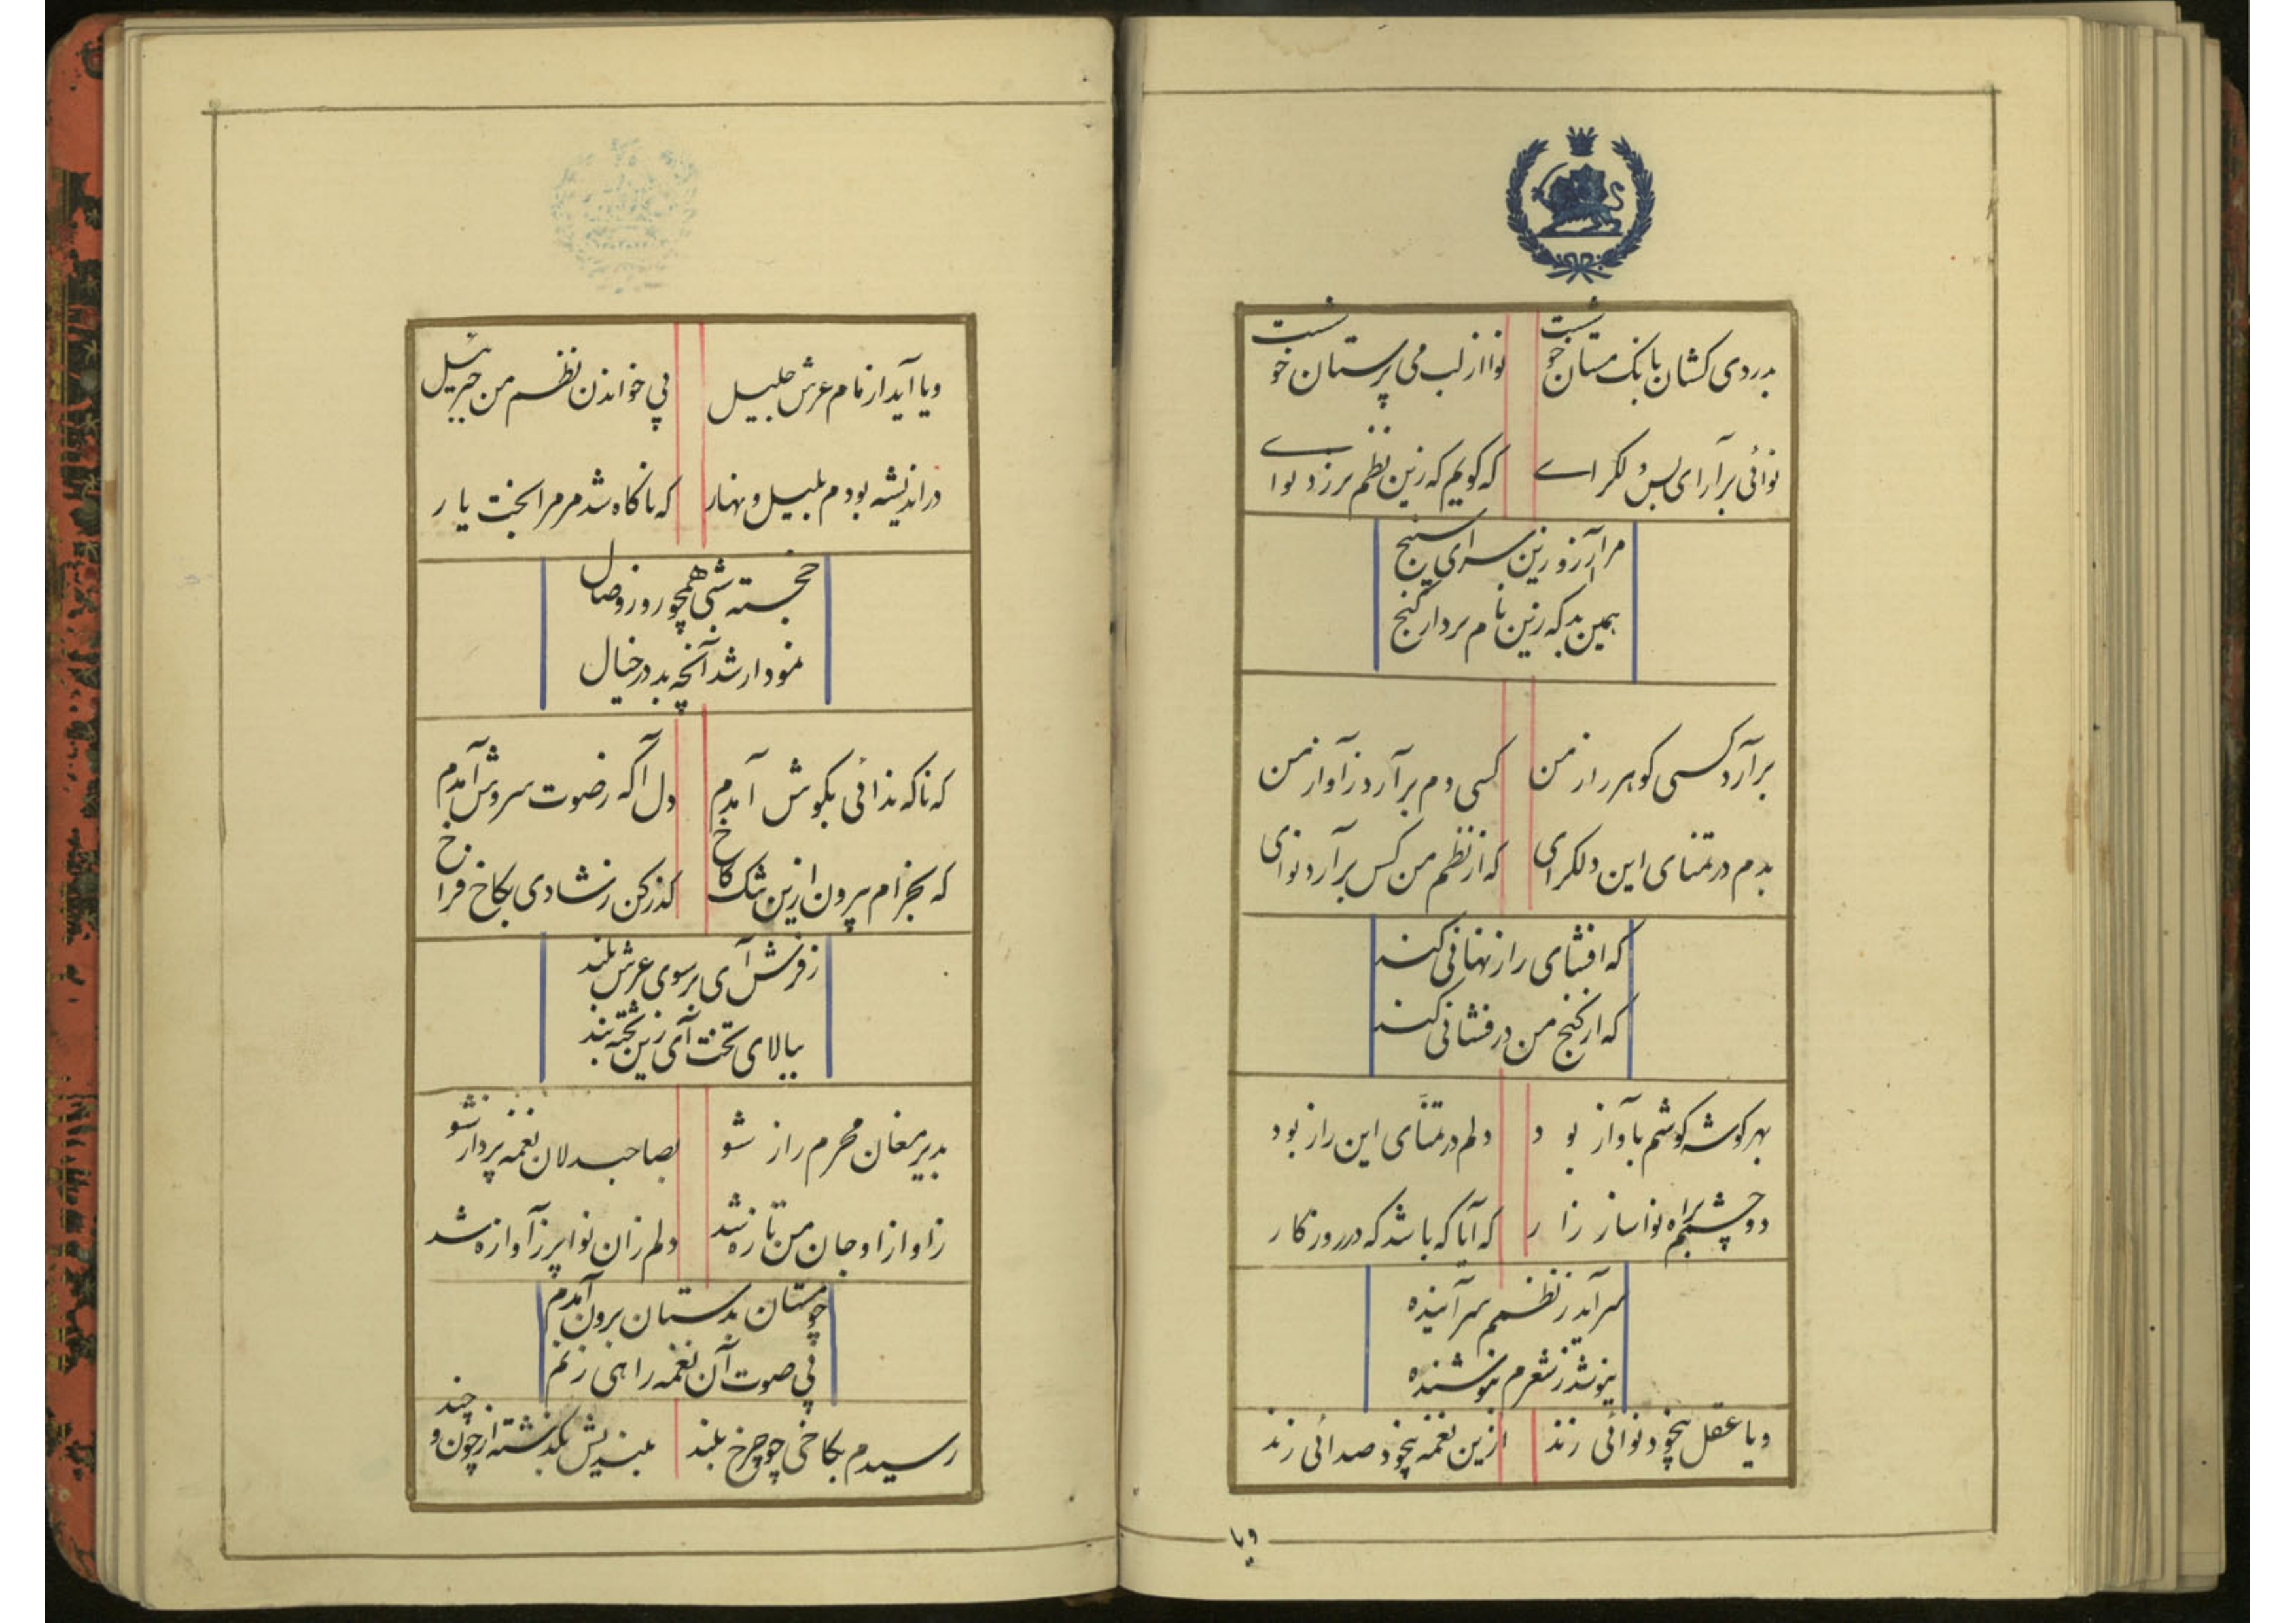 بدردی کشان بانک مستان خوشست
نوا از لب می پرستان خوشست
نوائی برآرای بس دلکرای
که کویم که زین نظم برزد نوای
مرا آرزو زین سرای سپنج
همین بد که زین نام بردار کنج
برآرد کسی کوهر راز من
کسی دم برآرد ز آواز من
بدم در تمنای این دلکرای
که از نظم من کس برآرد نوای
که افشای راز نهانی کند
که از کنج من درفشانی کند
بهر کوشه کوشم بآواز بود
دلم در تمنای این راز بود
دو چشمم براه نواساز زار
که آیا که باشد که در روزکار
سرآید ز نظمم سرآینده
نیوشد ز شعرم نیوشنده
ویا عقل بیخود نوائی زند
ازین نغمه بیخود صدائی زند
ویا
ویا آید از نام عرش جلیل
پی خواندن نظم من جبرئیل
در اندیشه بودم بلیل و نهار
که ناکاه شد مر مرا بخت یار
خجسته شبی همچو روز وصال
نمودار شد آنچه بد در خیال
که ناکه ندائی بکوش آمدم
دل آکه ز صوت سروش آمدم
که بخرام بیرون ازین تنک کاخ
کذر کن ز شادی بکاخ فراخ
ز فرش آی بر سوی عرش بلند
ببالای تخت آی زین تخته بند
بدیر مغان محرم راز شو
بصاحبدلان نغمه پرداز شو
ز آواز او جان من تازه شد
دلم زان نوا پر ز آوازه شد
چو مستان بدستان برون آمدم
پی صوت آن نغمه راهی زنم
رسیدم بکاخی چو چرخ بلند
بلندیش بکذشته از چون و چند